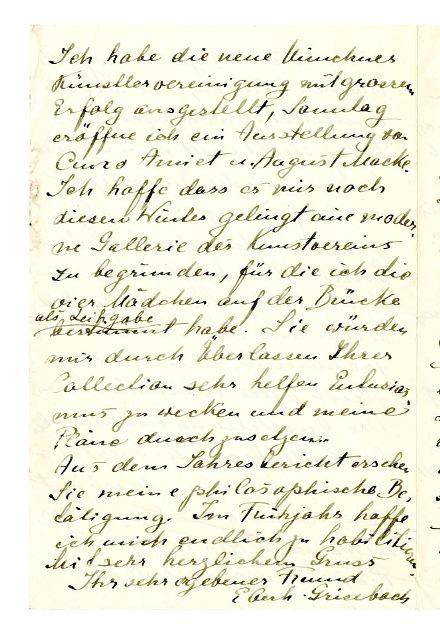 Ich habe die neue Münchner
Künstlervereinigung mit grossem
Erfolg ausgestellt, Sonntag
eröffne ich ein Ausstellung von
Cuno Amiet u. August Macke.
Ich hoffe dass es mir noch
diesen Winter gelingt eine moder-
ne Gallerie des Kunstvereins
zu begründen, für die ich die
vier Mädchen auf der Brücke
als Leihgabe
bestimmt habe. Sie würden
mir durch Überlassen Ihrer
Collection sehr helfen Entusias
mus zu wecken und meine
Pläne durchzusetzen.
Aus dem Jahresbericht ersehen
Sie meine philosophische Be-
tätigung. Im Frühjahr hoffe
ich mich endlich zu habilitieren.
Mit sehr herzlichem Gruss
Ihr sehr ergebener Freund
Eberh. Grisebach